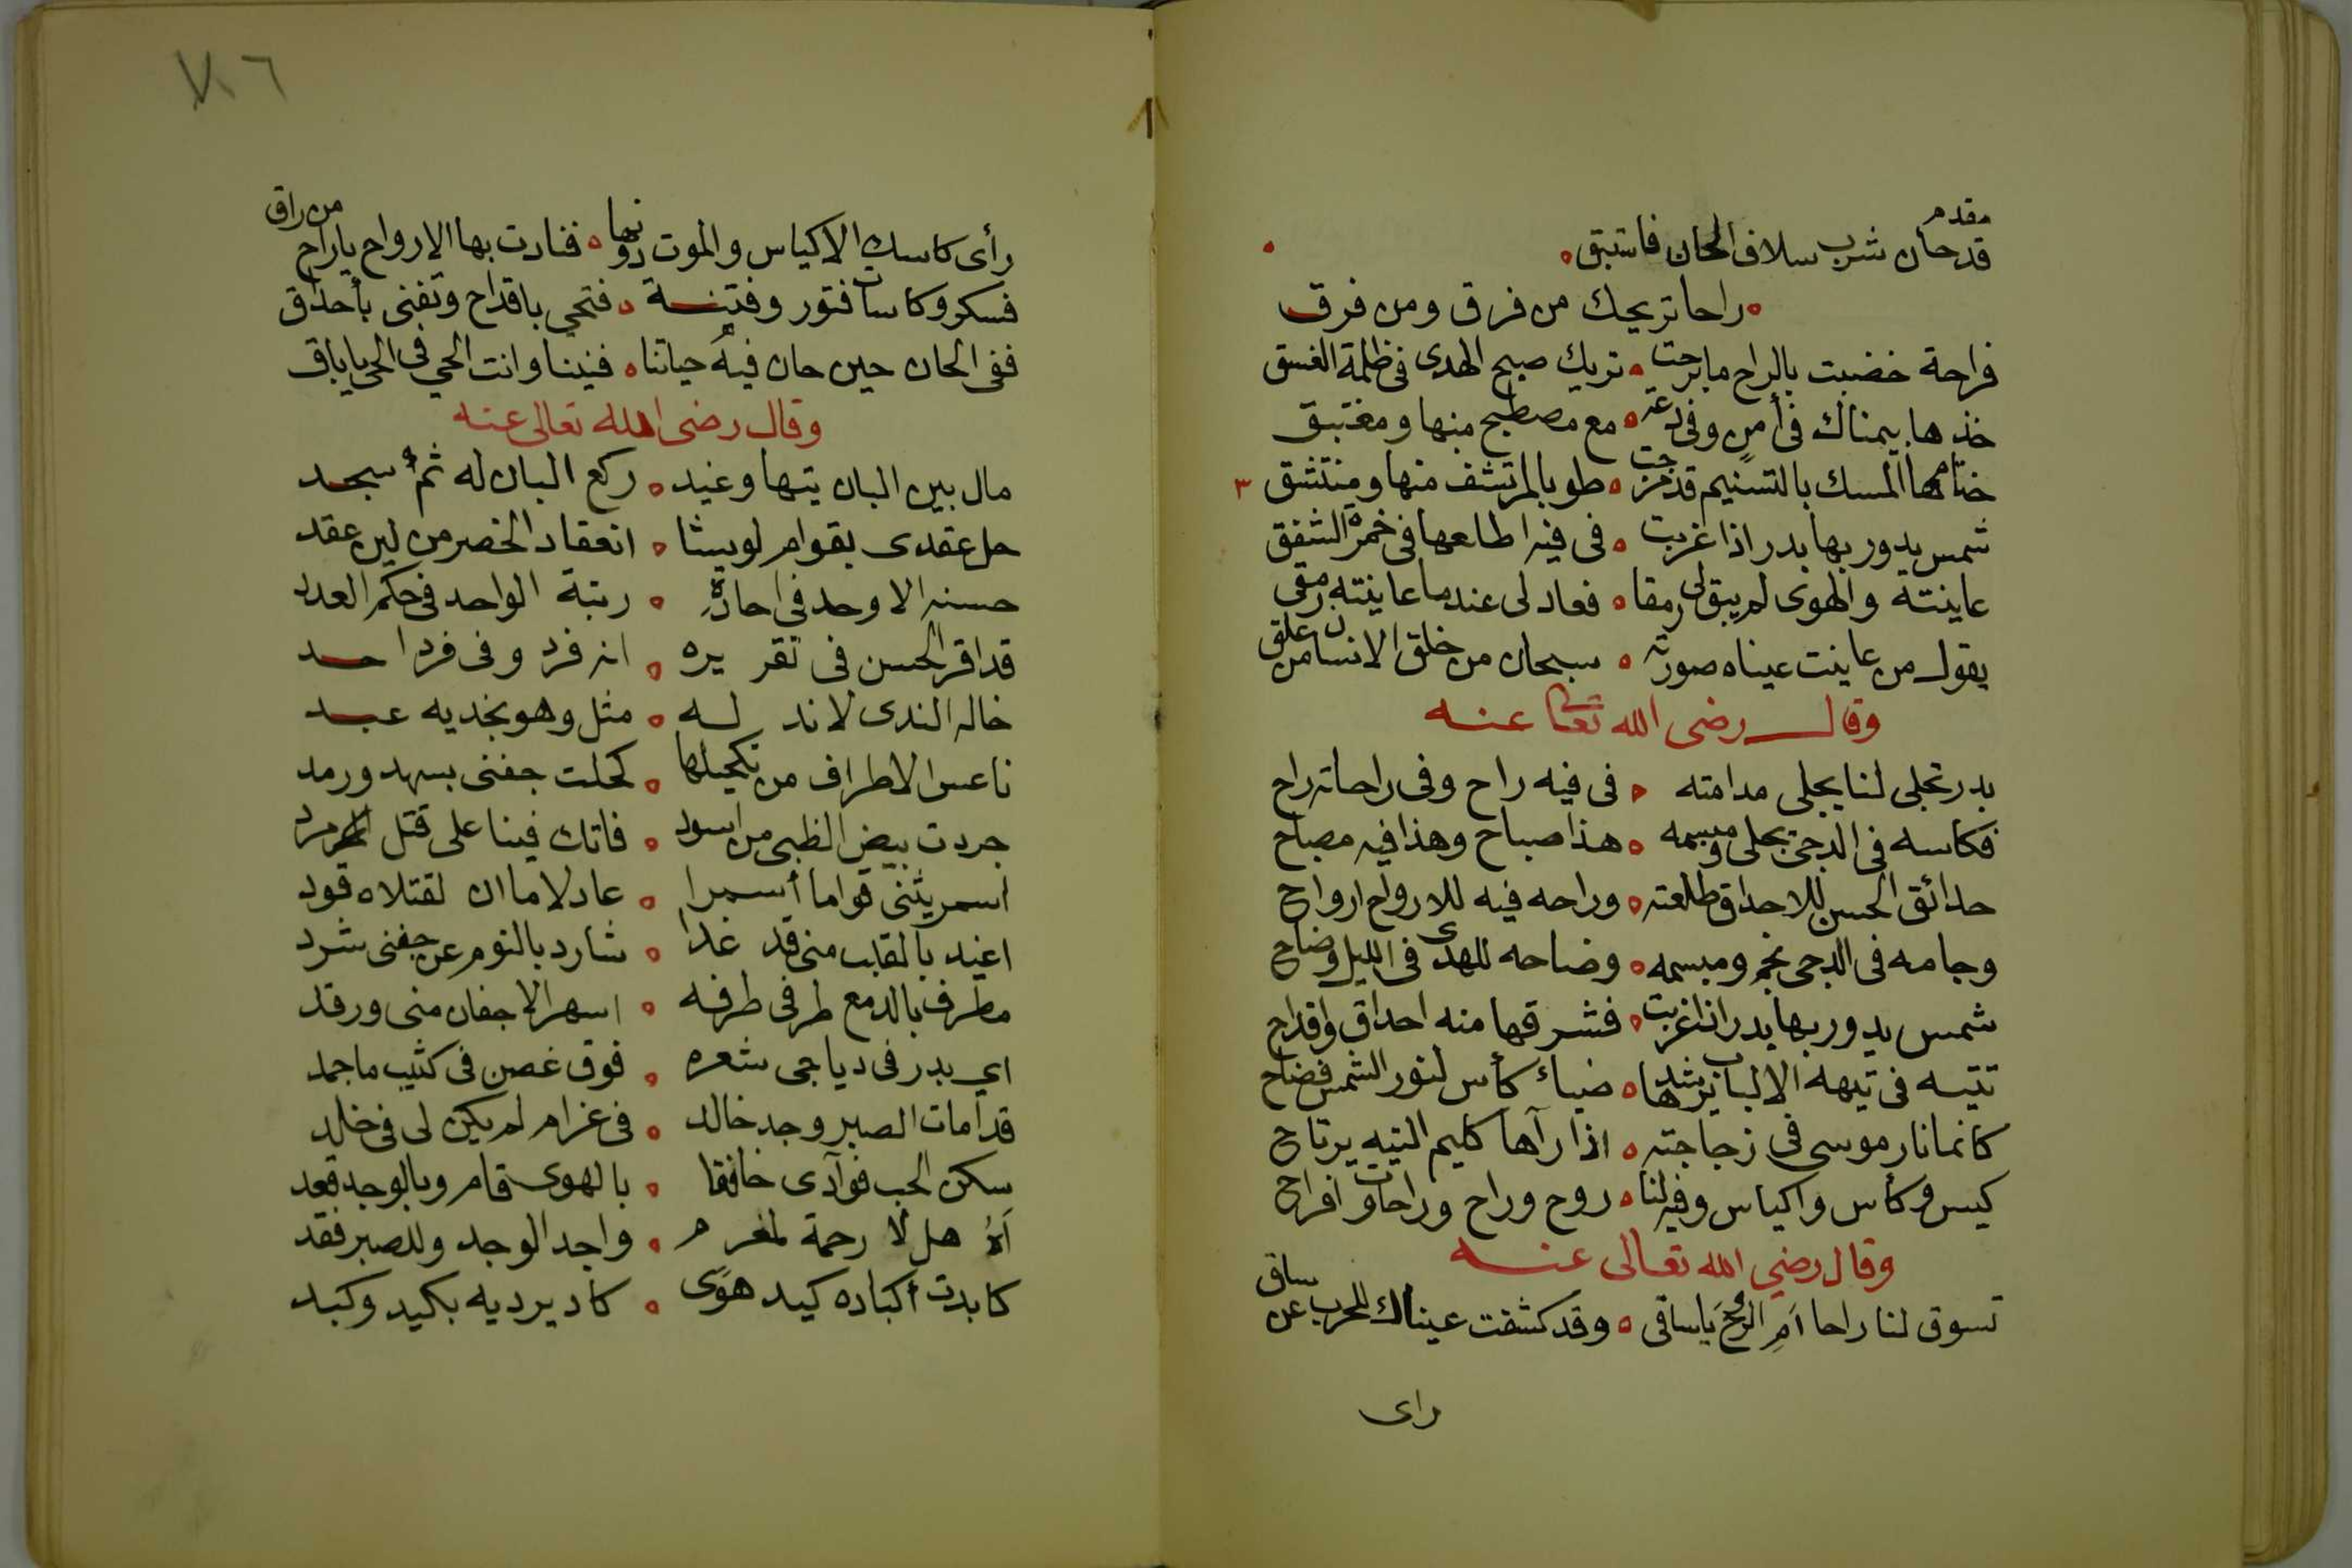 مقدم
قد حان شرب سلاف الحان فاستبق ه
ه راحا تريحك من فرق ومن فرق
فراحة خضبت بالراح ما برحت ه تريك صبح الهدى فى ظلمة الغسق
خذها بيمناك فى أمن وفى دعة ه مع مصطبح منها ومغتبق
ختامها المسك بالتسنيم قد مزجت ه طوبا لمرتشف منها ومنتشق ٣
شمس يدور بها بدر اذا غربت ه فى فيه اطالعها فى خمرة الشفق
عاينته والهوى لم يبق لى رمقا ه فعاد لى عندما عاينته رمقى
يقول من عاينت عيناه صورته ه سبحان من خلق الانسان من علق
وقال رضى الله تعالى عنه
بدر تجلى لنا يجلى مدامته ه فى فيه راح وفى راحاته راح
فكاسه فى الدجى يجلى ومبسمه ه هذا صباح وهذا فيه مصباح
حدائق الحسن للاحداق طلعته ه وراحه فيه للارواح ارواح
وجامه فى الدجى نجم ومبسمه ه وضاحه للهدى فى الليل وضاح
شمس يدور بها بدر اذا غربت ه فشرقها منه احداق واقداح
تتيه فى تيهه الالباب ينشدها ه ضياء كأس لنور الشمس فضاح
كانما نار موسى فى زجاجته ه اذا رآها كليم التيه يرتاح
كيس وكأس واكياس وفيه لنا ه روح وراح وراحات وافراح
وقال رضي الله تعالى عنه
تسوق لنا راحا أم الريح يا ساقى ه وقد كشفت عيناك للحرب عن ساق
راى
٧٠٦
رأى كاسك الاكياس والموت دونها ه فنادت بها الارواح ياراح من راق
فسكر وكاسات فتور وفتنة ه فتحي باقداح وتفنى بأحداق
ففى الحان حين حان فيه حياتنا ه فنينا وانت الحي فى الحي ياباق
وقال رضى الله تعالى عنه
مال بين البان تيها وغيد ه ركع البان له ثم سجد
حل عقدى بقوام لو يشا ه انعقاد الخصر من لين عقد
حسنه الاوحد فى احاده ه رتبة الواحد فى حكم العدد
قد اقر الحسن فى تقريره ه انه فرد وفى فرد احد
خاله الندى لا ند له ه مثل وهو بخديه عبد
ناعس الاطراف من تكحيلها ه كحلت جفنى بسهد ورمد
جردت بيض الظبى من اسود ه فاتك فينا على قتل مرد
اسمر يثنى قواما أسمرا ه عادلا ما ان لقتلاه قود
اغيد بالقلب منى قد غدا ه شارد بالنوم عن جفنى شرد
مطرف بالدمع طرفى طرفه ه اسهر الاجفان منى ورقد
اي بدر فى دياجى شعره ه فوق غصن فى كثيب ماجمد
قد امات الصبر وجد خالد ه فى غرام لم يكن لى فى خلد
سكن الحب فوآدى خافقا ه بالهوى قام وبالوجد قعد
آه هل لا رحمة لمغرم ه واجد الوجد وللصبر فقد
كابدت أكباده كيد هوى ه كاد يرديه بكيد وكبد